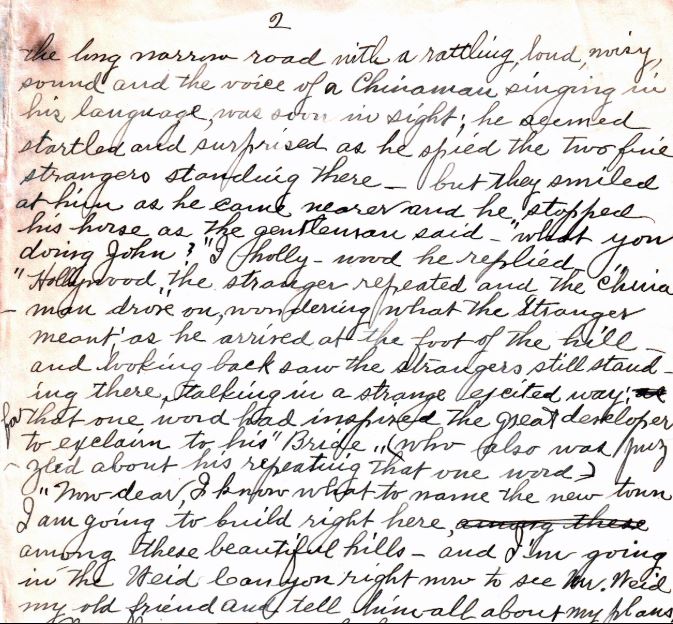 2
the long narrow road with a rattling, loud, noisy,
sound and the voice of a Chinaman singing in
his language, was soon in sight; he seemed
startled and surprised as he spied the two fine
strangers standing there — but they smiled
at him as he came nearer and he stopped
his horse as the gentleman said — "what you
doing John?" "I holly-wood he replied
"Hollywood" the stranger repeated and the China
- man drove on, wondering what the Stranger
meant as he arrived at the foot of the hill —
and looking back saw the strangers still stand -
ing there, talking in a strange excited way;
for that one word had inspired the great developer
to exclaim to his "Bride", (who also was puz
- zled about his repeating that one word)
"Now dear, I know what to name the new town
I am going to build right here, among these
among these beautiful hills — and I'm going
in the Weid Canyon right now to see Mr. Weid
my old friend and tell him all about my plans